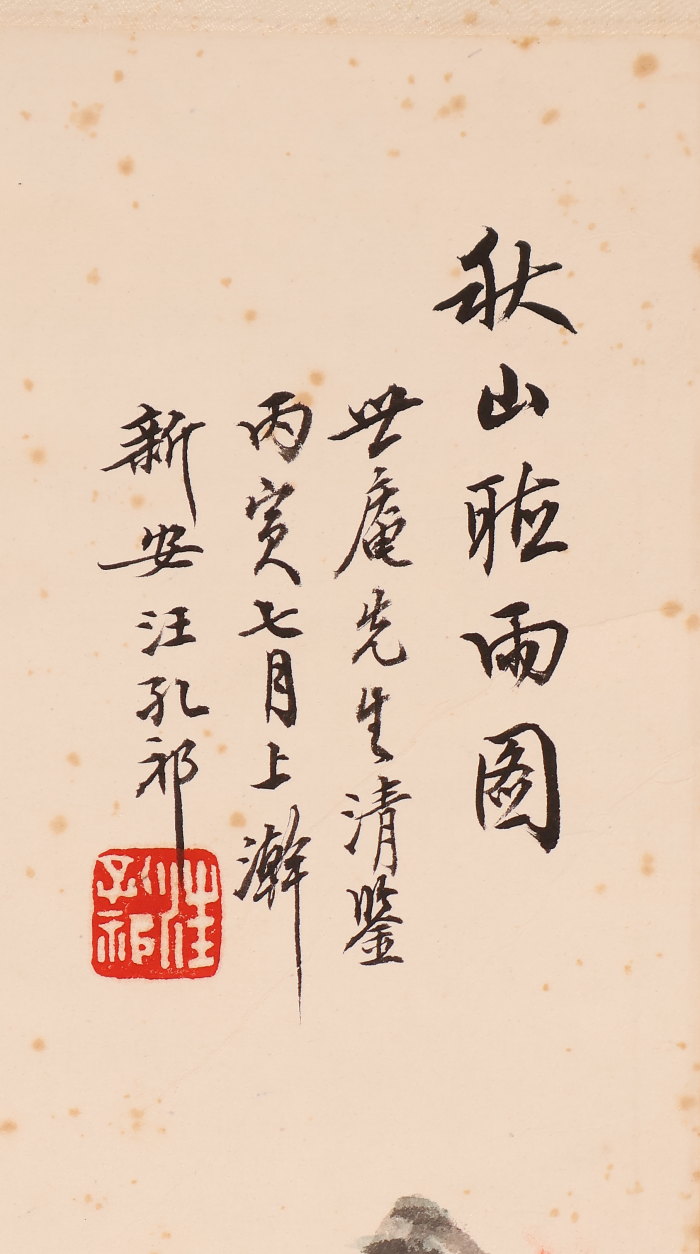 秋山聴雨图
世庵先生清鉴
丙寅七月上澣
新安汪孔祁
汪孔祁